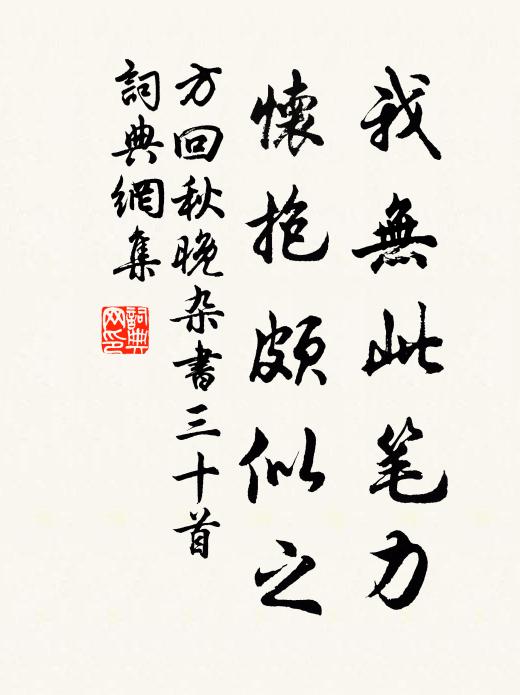 我無此笔力
懷抱頗似之
方回秋晚杂書三十首
詞典網集
詞典网印